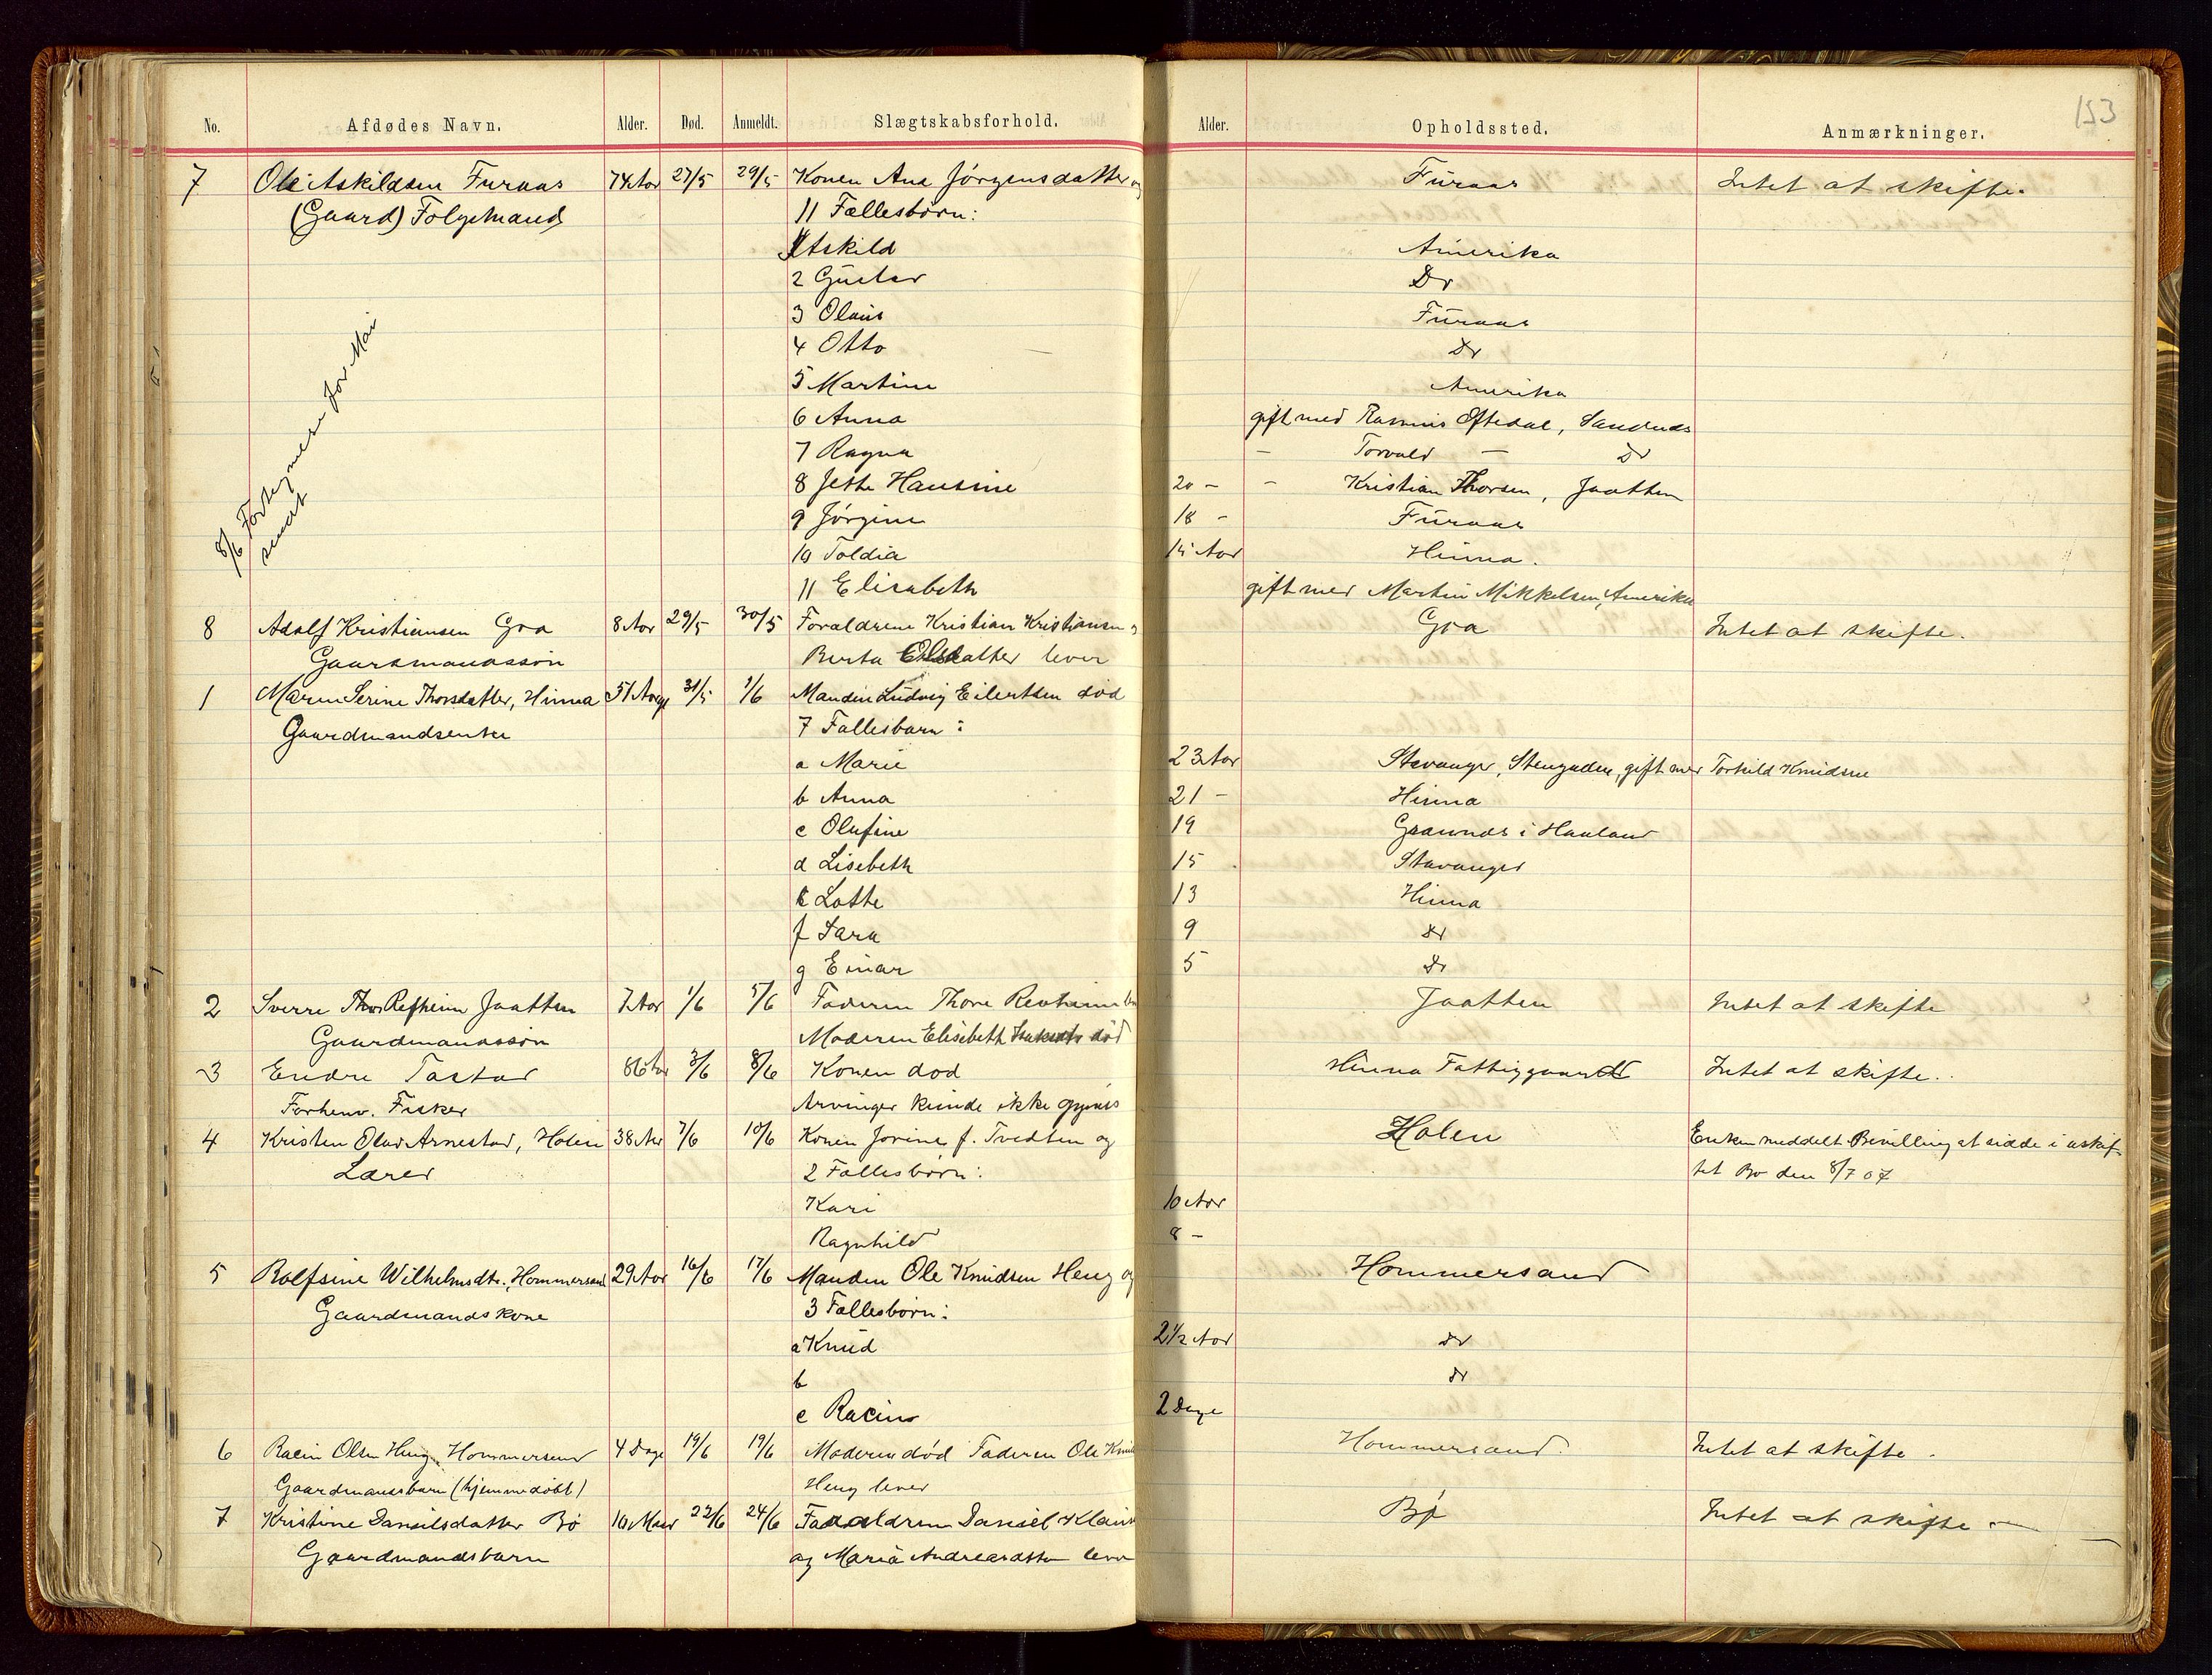 153
No. Afdødes Navn. Alder. Død. Anmeldt. Slægtskabsforhold. Alder. Opholdssted. Anmærkninger.
7 Ole Askildsen Furaas 74 Aar 27/5 29/5 Konen Ane Jörgensdatter og Furaas Intet at skifte.
(Gaard) Folgemand 11 Fællesbörn:
1 Askild Amerika
2 Gustav Do
3 Olaus Furaas
4 Otto Do
5 Martine Amerika
6 Anna gift med Rasmus Oftedal, Sandnes
7 Ragna - Torvald - Do
8 Jette Hansine 20 - - Kristian Thorsen, Jaatten
9 Jörgine 18 - Furaas
10 Toldia 15 Aar Hinna.
11 Elisabeth gift med Martin Mikkelsen, Amerika
8/6 Fortegnelse for Mai
sendt
8 Adolf Kristiansen Goa 8 Aar 29/5 30/5 Forældrene Kristian Kristiansen og Goa Intet at skifte.
Gaardmandssön Berta Olsdatter lever
1 Maren Serine Thorsdatter, Hinna 51 Aar 31/5 1/6 Manden Ludvig Eilertsen död
Gaardmandsenke 7 Fællesbarn:
a Marie 23 Aar Stavanger, Stengaden, gift med Torkild Knudsen
b Anna 21 - Hinna
c Olufine 19 Grannes i Haaland
d Lisebeth 15 Stavanger
e Lotte 13 Hinna
f Sara 9 do
g Einar 5 do
2 Sverre Thor Refheim Jaatten 7 Aar 1/6 5/6 Faderen Thore Revheim Jaatten Intet at skifte
Gaardmandssön Moderen Elisebeth död
3 Endre Tastad 86 Aar 3/6 8/6 Konen död Hinna Fattiggaard Intet at skifte.
Forhenv. Fisker Arvinger kunde ikke opgives
4 Kristen Olav Arnestad, Holen 38 Aar 7/6 10/6 Konen Jorine f. Tvedten og Holen Enken meddelt Bevilling at sidde i uskif-
Lærer 2 Fællesbörn: tet Bo den 8/7 07
Kari 10 Aar
Ragnhild 8 -
5 Rolfsine Wilhelmsdtr. Hommersand 29 Aar 16/6 17/6 Manden Ole Knudsen Heng og Hommersand
Gaardmandskone 3 Fællesbörn:
a Knud 2 1/2 Aar do
b do
c Racin 2 Dage
6 Racin Olsen Heng, Hommersand 4 Dage 19/6 19/6 Moderen död Faderen Ole Knud Hommersand. Intet at skifte.
Gaardmandsbarn (hjemmedöbt) Heng lever
7 Kristine Danielsdatter Bö 10 Maar 22/6 24/6 Forældrene Daniel Klaus Bø Intet at skifte.
Gaardmandsbarn og Maria Andreasdtr lever